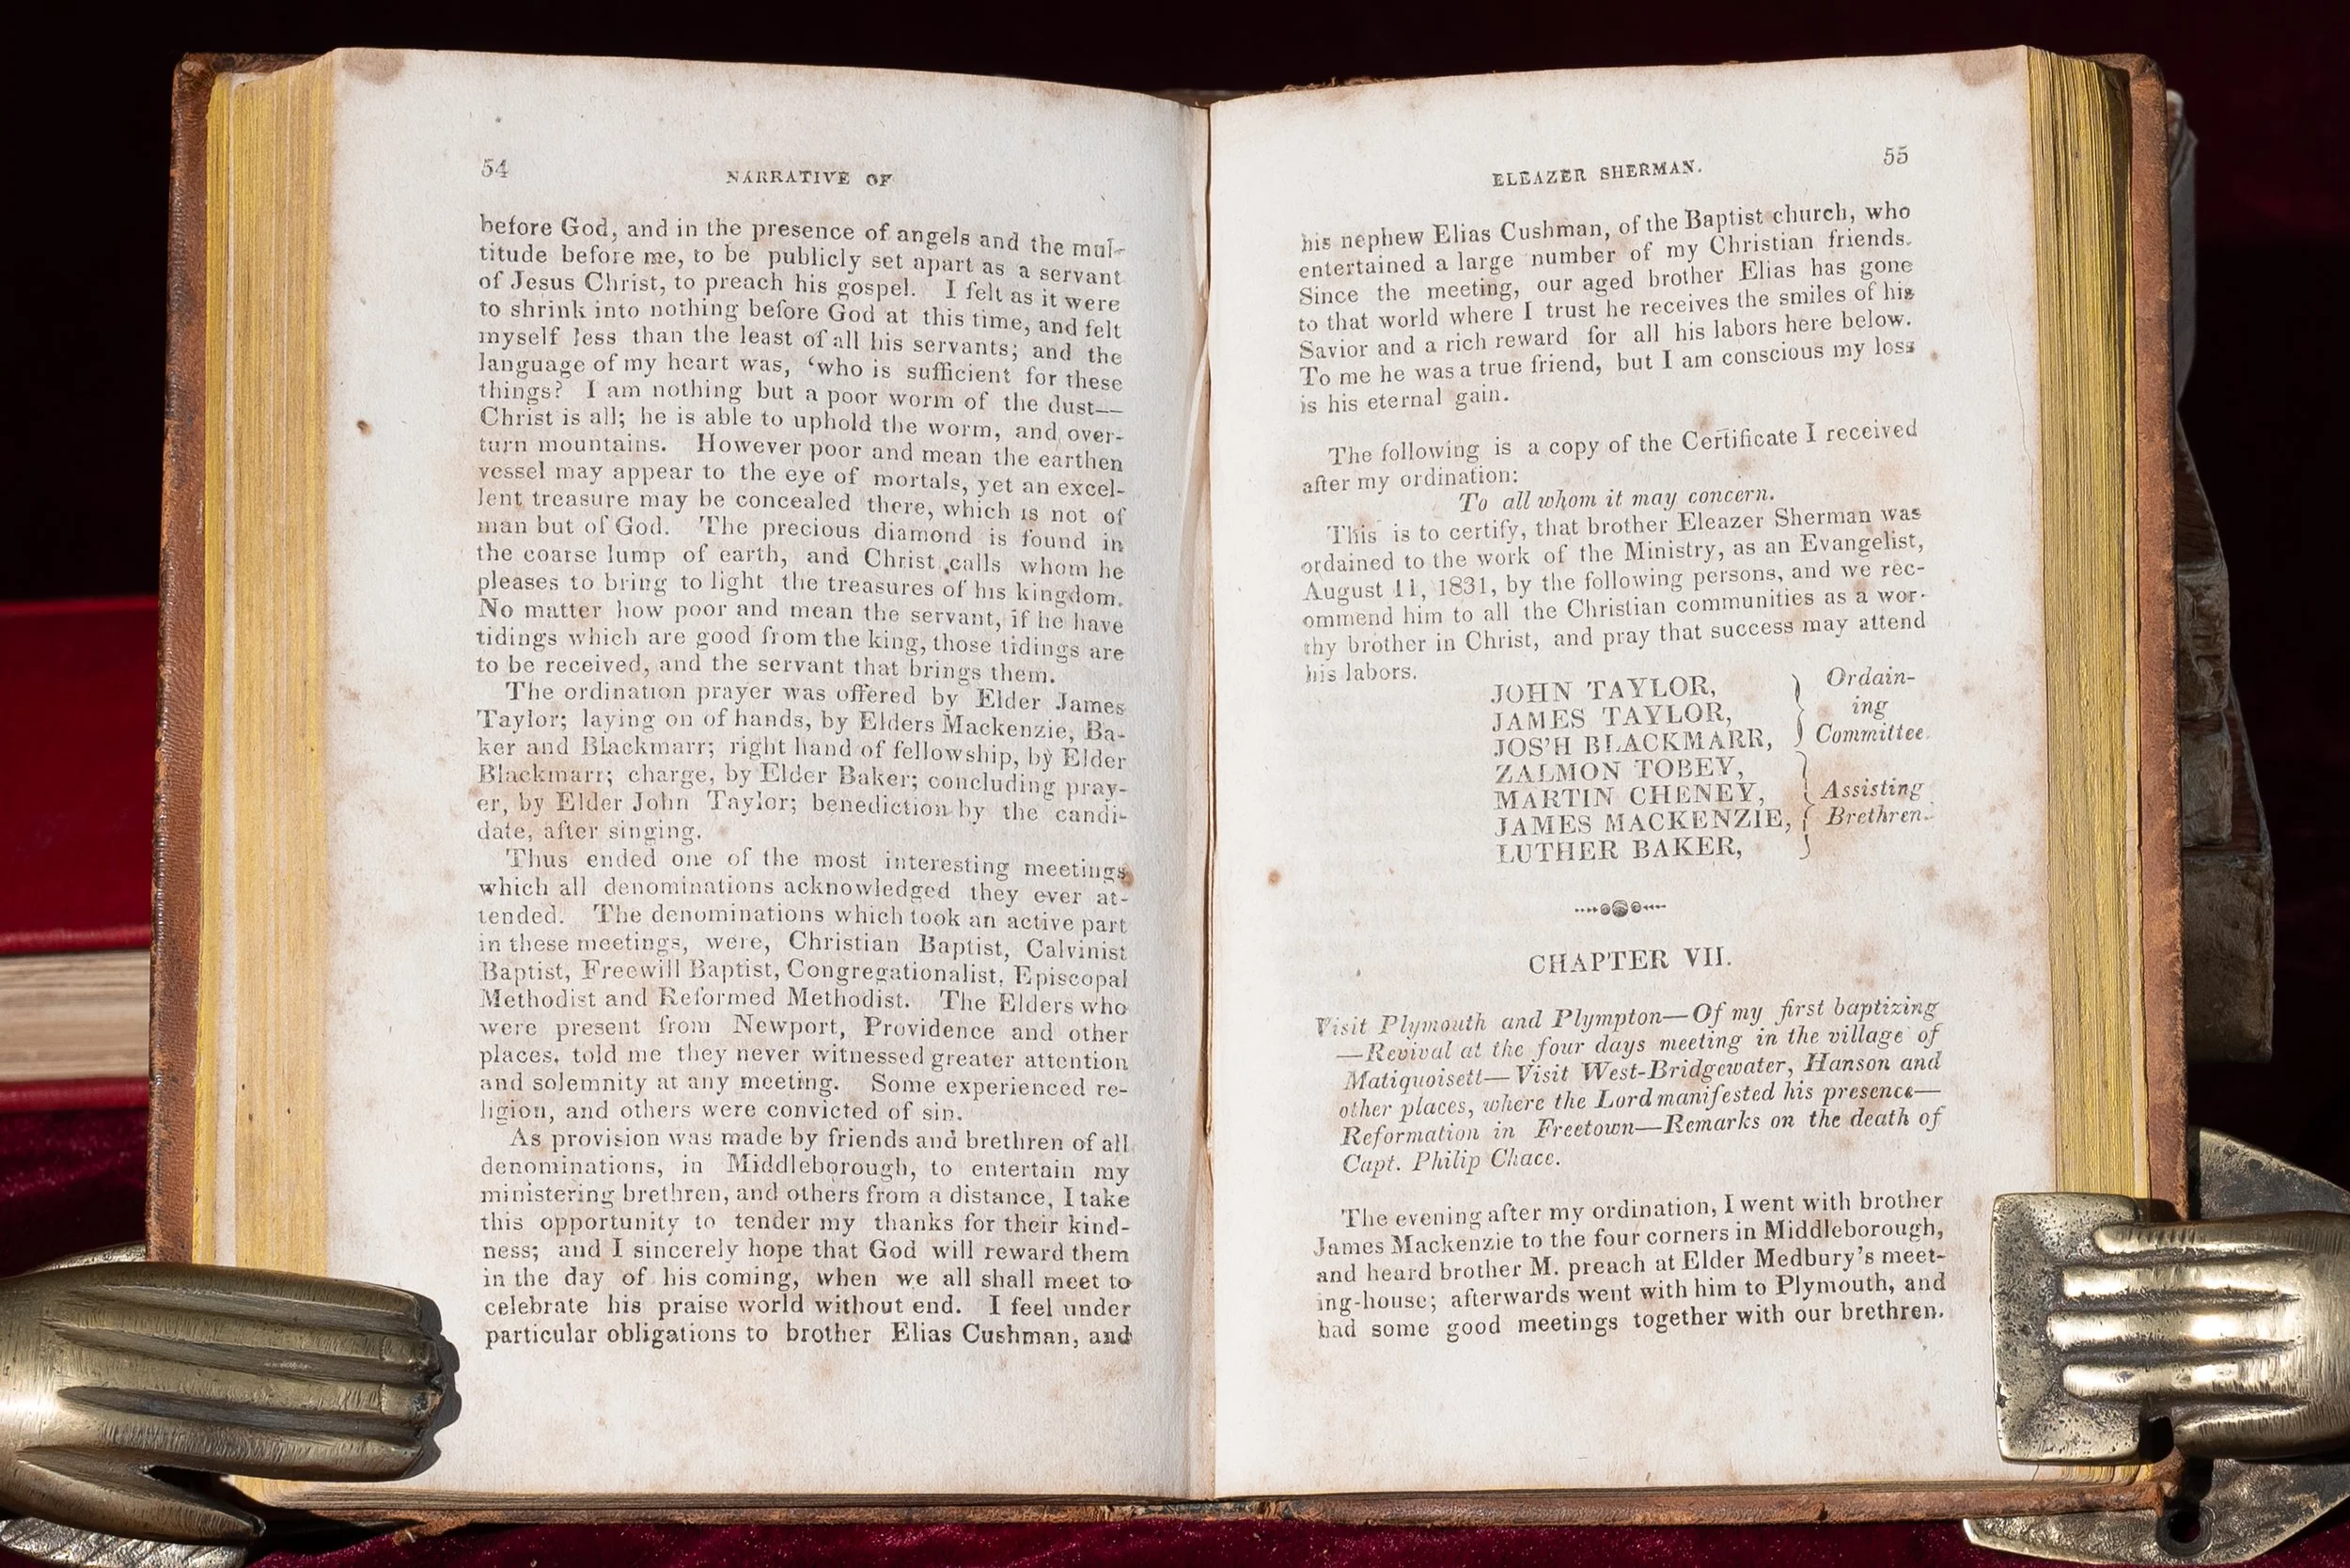 54
NARRATIVE OF
before God, and in the presence of angels and the mul-
titude before me, to be publicly set apart as a servant
of Jesus Christ, to preach his gospel. I felt as it were
to shrink into nothing before God at this time, and felt
myself less than the least of all his servants; and the
language of my heart was, ‘who is sufficient for these
things? I am nothing but a poor worm of the dust—
Christ is all; he is able to uphold the worm, and over-
turn mountains. However poor and mean the earthen
vessel may appear to the eye of mortals, yet an excel-
lent treasure may be concealed there, which is not of
man but of God. The precious diamond is found in
the coarse lump of earth, and Christ calls whom he
pleases to bring to light the treasures of his kingdom.
No matter how poor and mean the servant, if he have
tidings which are good from the king, those tidings are
to be received, and the servant that brings them.
The ordination prayer was offered by Elder James
Taylor; laying on of hands, by Elders Mackenzie, Ba-
ker and Blackmarr; right hand of fellowship, by Elder
Blackmarr; charge, by Elder Baker; concluding pray-
er, by Elder John Taylor; benediction by the candi-
date, after singing.
Thus ended one of the most interesting meetings
which all denominations acknowledged they ever at-
tended. The denominations which took an active part
in these meetings, were, Christian Baptist, Calvinist
Baptist, Freewill Baptist, Congregationalist, Episcopal
Methodist and Reformed Methodist. The Elders who
were present from Newport, Providence and other
places, told me they never witnessed greater attention
and solemnity at any meeting. Some experienced re-
ligion, and others were convicted of sin.
As provision was made by friends and brethren of all
denominations, in Middleborough, to entertain my
ministering brethren, and others from a distance, I take
this opportunity to tender my thanks for their kind-
ness; and I sincerely hope that God will reward them
in the day of his coming, when we all shall meet to
celebrate his praise world without end. I feel under
particular obligations to brother Elias Cushman, and
ELEAZER SHERMAN.
55
his nephew Elias Cushman, of the Baptist church, who
entertained a large number of my Christian friends.
Since the meeting, our aged brother Elias has gone
to that world where I trust he receives the smiles of his
Savior and a rich reward for all his labors here below.
To me he was a true friend, but I am conscious my loss
is his eternal gain.
The following is a copy of the Certificate I received
after my ordination:
To all whom it may concern.
This is to certify, that brother Eleazer Sherman was
ordained to the work of the Ministry, as an Evangelist,
August 11, 1831, by the following persons, and we rec-
ommend him to all the Christian communities as a wor-
thy brother in Christ, and pray that success may attend
his labors.
JOHN TAYLOR,
JAMES TAYLOR,
JOS'H BLACKMARR,
Ordain-
ing
Committee.
ZALMON TOBEY,
MARTIN CHENEY,
JAMES MACKENZIE,
LUTHER BAKER,
Assisting
Brethren.
CHAPTER VII.
Visit Plymouth and Plympton—Of my first baptizing
—Revival at the four days meeting in the village of
Matiquoisett—Visit West-Bridgewater, Hanson and
other places, where the Lord manifested his presence—
Reformation in Freetown—Remarks on the death of
Capt. Philip Chace.
The evening after my ordination, I went with brother
James Mackenzie to the four corners in Middleborough,
and heard brother M. preach at Elder Medbury's meet-
ing-house; afterwards went with him to Plymouth, and
had some good meetings together with our brethren.